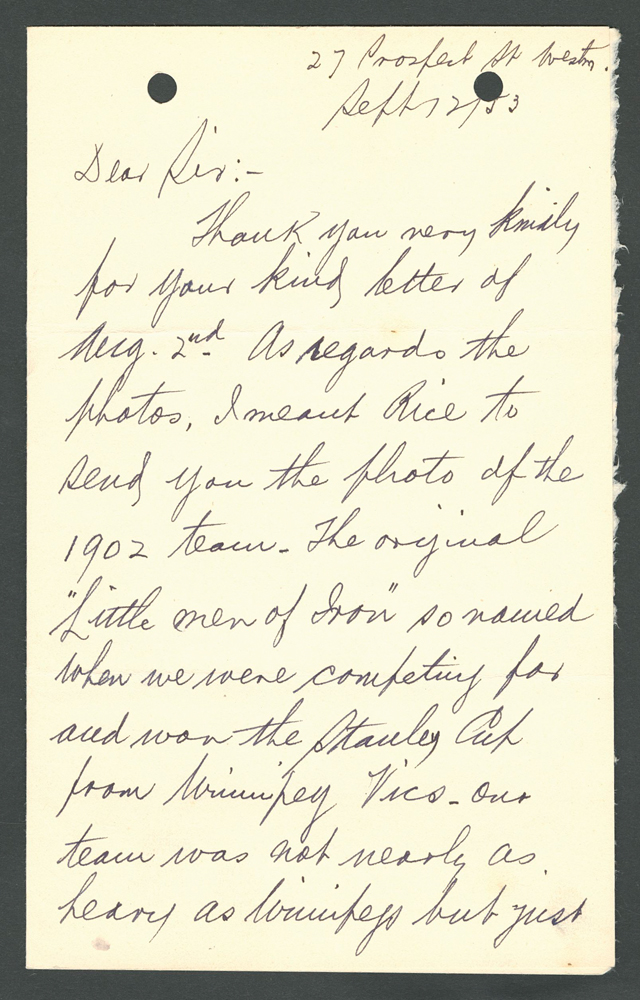 27 Prospect St Westm.
Sept 12/53
Dear Sir:-
Thank you very kindly
for your kind letter of
Aug. 2nd. As regards the
photos, I meant Rice to
send you the photo of the
1902 team - The original
"Little men of Iron" so named
when we were competing for
and won the Stanley Cup
from Winnipeg Vics - our
team was not nearly as
heavy as Winnipegs but just